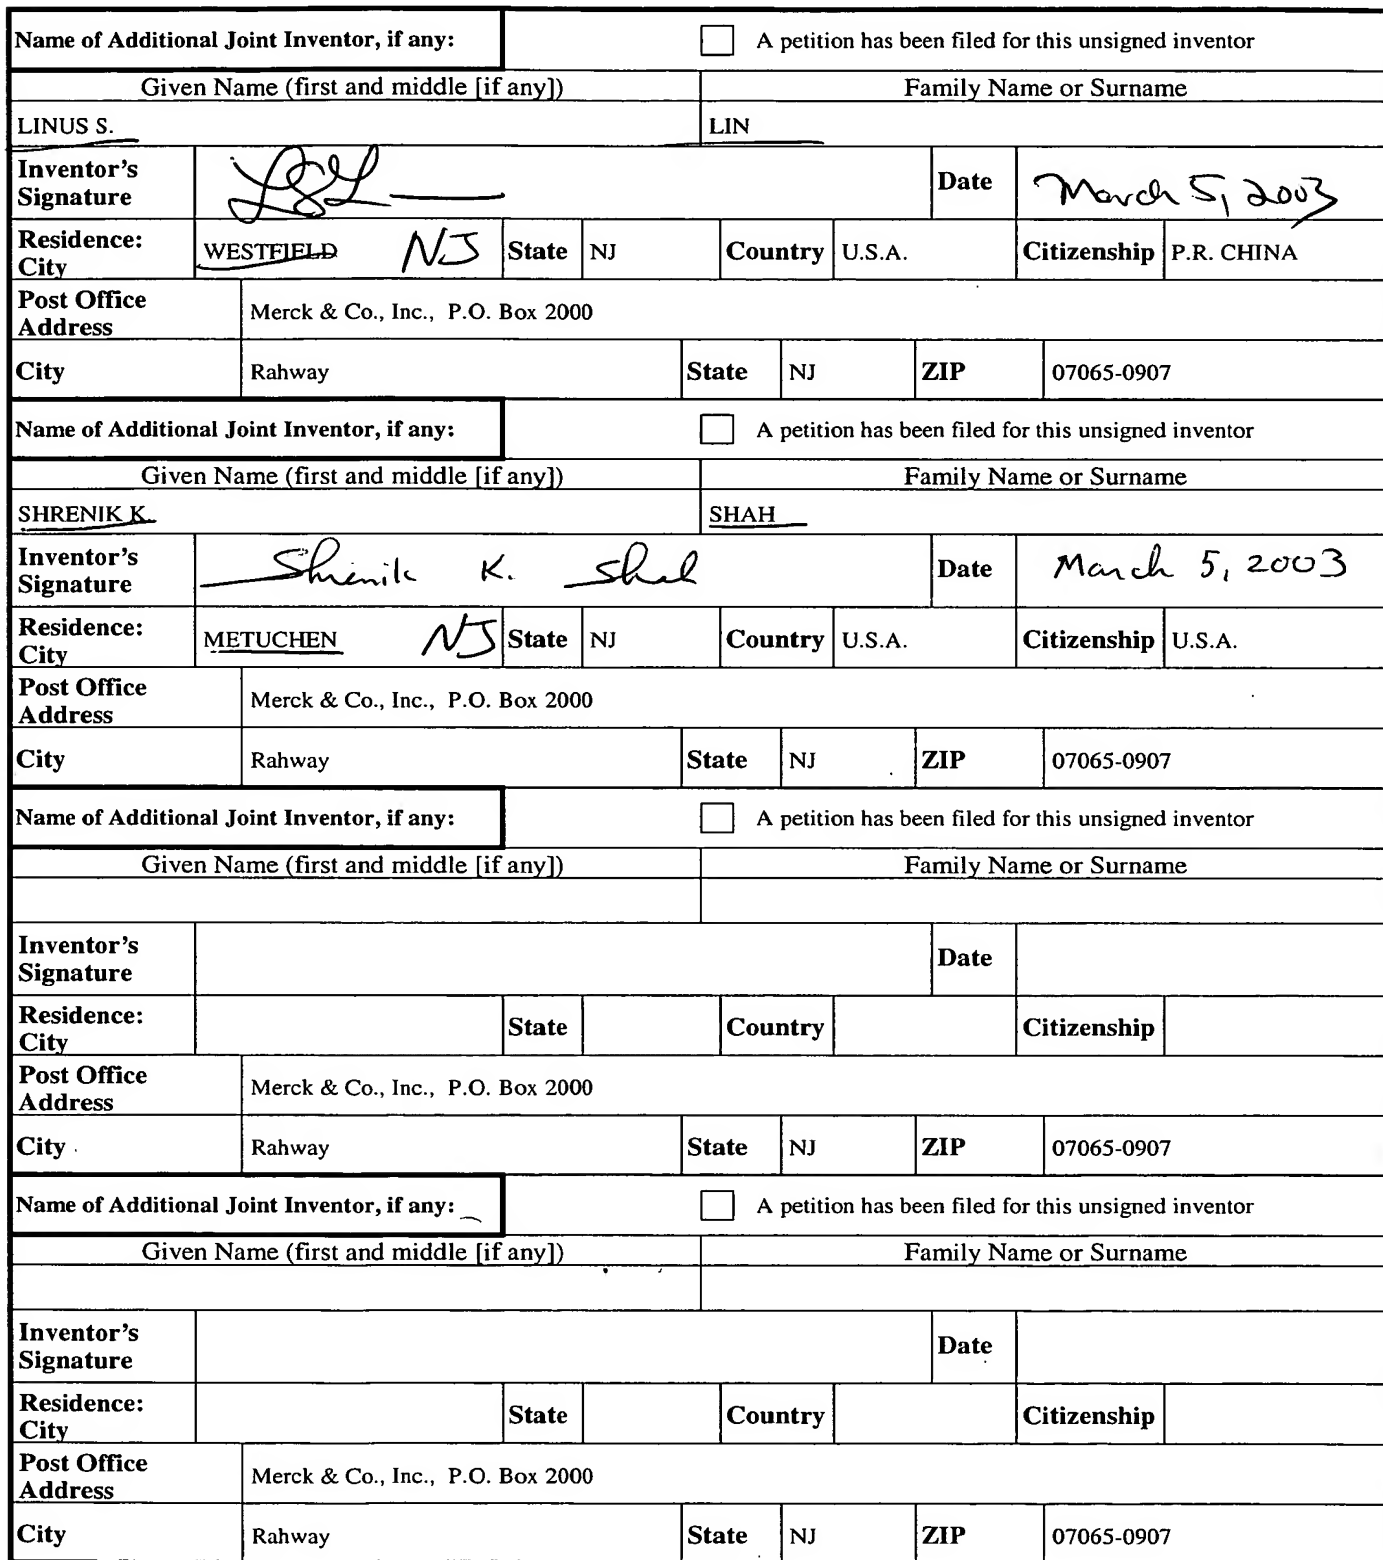 Name of Additional Joint Inventor, if any: A petition has been filed for this unsigned inventor
Given Name (first and middle [if any]) Family Name or Surname
LINUS S. LIN
Inventor's Signature Date March 5, 2003
Residence: City WESTFIELD NJ State NJ Country U.S.A. Citizenship P.R. CHINA
Post Office Address Merck & Co., Inc., P.O. Box 2000
City Rahway State NJ ZIP 07065-0907
Name of Additional Joint Inventor, if any: A petition has been filed for this unsigned inventor
Given Name (first and middle [if any]) Family Name or Surname
SHRENIK K. SHAH
Inventor's Signature Shrenik K. Shah Date March 5, 2003
Residence: City METUCHEN NJ State NJ Country U.S.A. Citizenship U.S.A.
Post Office Address Merck & Co., Inc., P.O. Box 2000
City Rahway State NJ ZIP 07065-0907
Name of Additional Joint Inventor, if any: A petition has been filed for this unsigned inventor
Given Name (first and middle [if any]) Family Name or Surname
Inventor's Signature Date
Residence: City State Country Citizenship
Post Office Address Merck & Co., Inc., P.O. Box 2000
City Rahway State NJ ZIP 07065-0907
Name of Additional Joint Inventor, if any: A petition has been filed for this unsigned inventor
Given Name (first and middle [if any]) Family Name or Surname
Inventor's Signature Date
Residence: City State Country Citizenship
Post Office Address Merck & Co., Inc., P.O. Box 2000
City Rahway State NJ ZIP 07065-0907